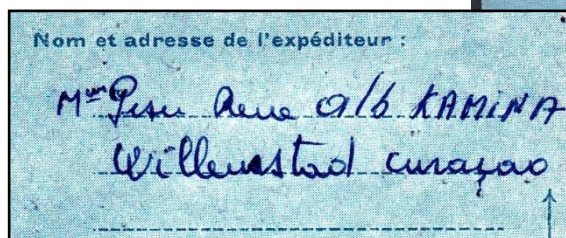 Nom et adresse de l'expéditeur :
Rene a/b KAMINA
Willemstad curaçao